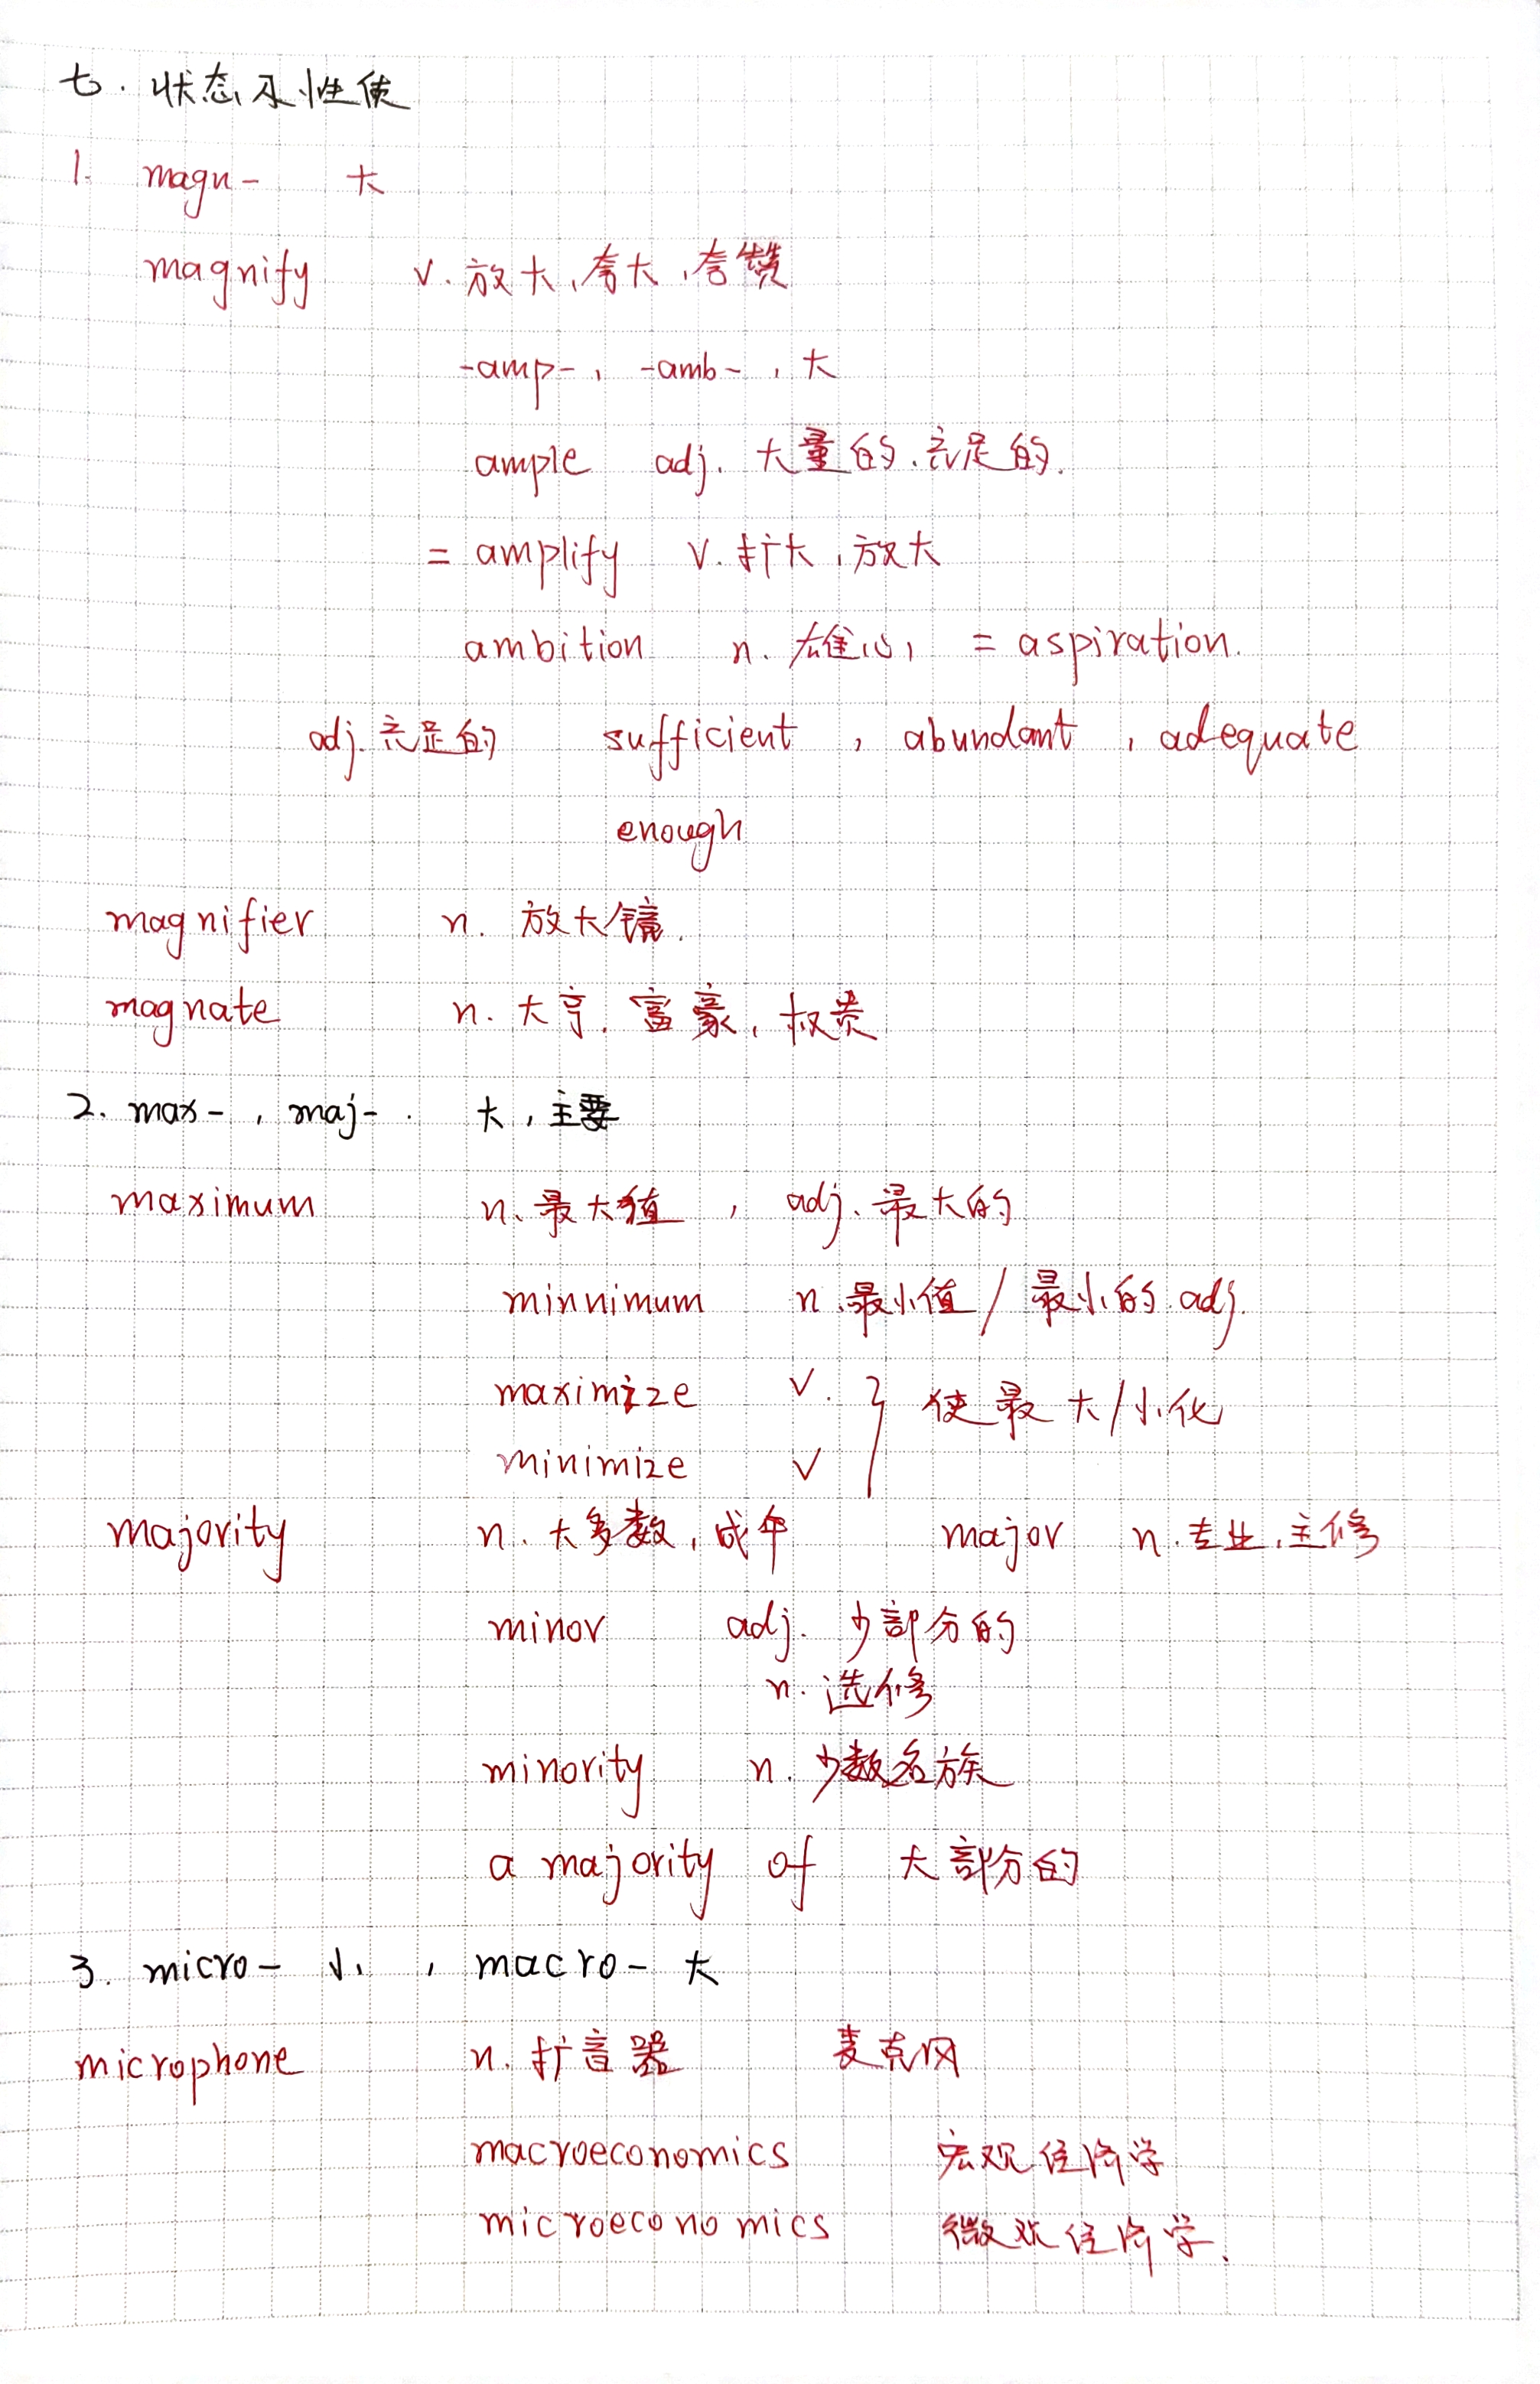 七. 状态及性使
1. magn- 大
magnify v. 放大,夸大,夸赞
-amp-, -amb-, 大
ample adj. 大量的.充足的.
= amplify v. 扩大,放大
ambition n. 雄心, = aspiration.
adj.充足的 sufficient , abundant , adequate
enough
magnifier n. 放大镜.
magnate n. 大亨. 富豪, 权贵
2. max-, maj-. 大,主要
maximum n.最大值 , adj.最大的
minnimum n.最小值/最小的.adj.
maximize v. } 使最大/小化
minimize v
majority n. 大多数,成年 major n.专业.主修
minor adj. 少部分的
n. 选修
minority n. 少数名族
a majority of 大部分的
3. micro- 小 , macro- 大
microphone n. 扩音器 麦克风
macroeconomics 宏观经济学
microeconomics 微观经济学.